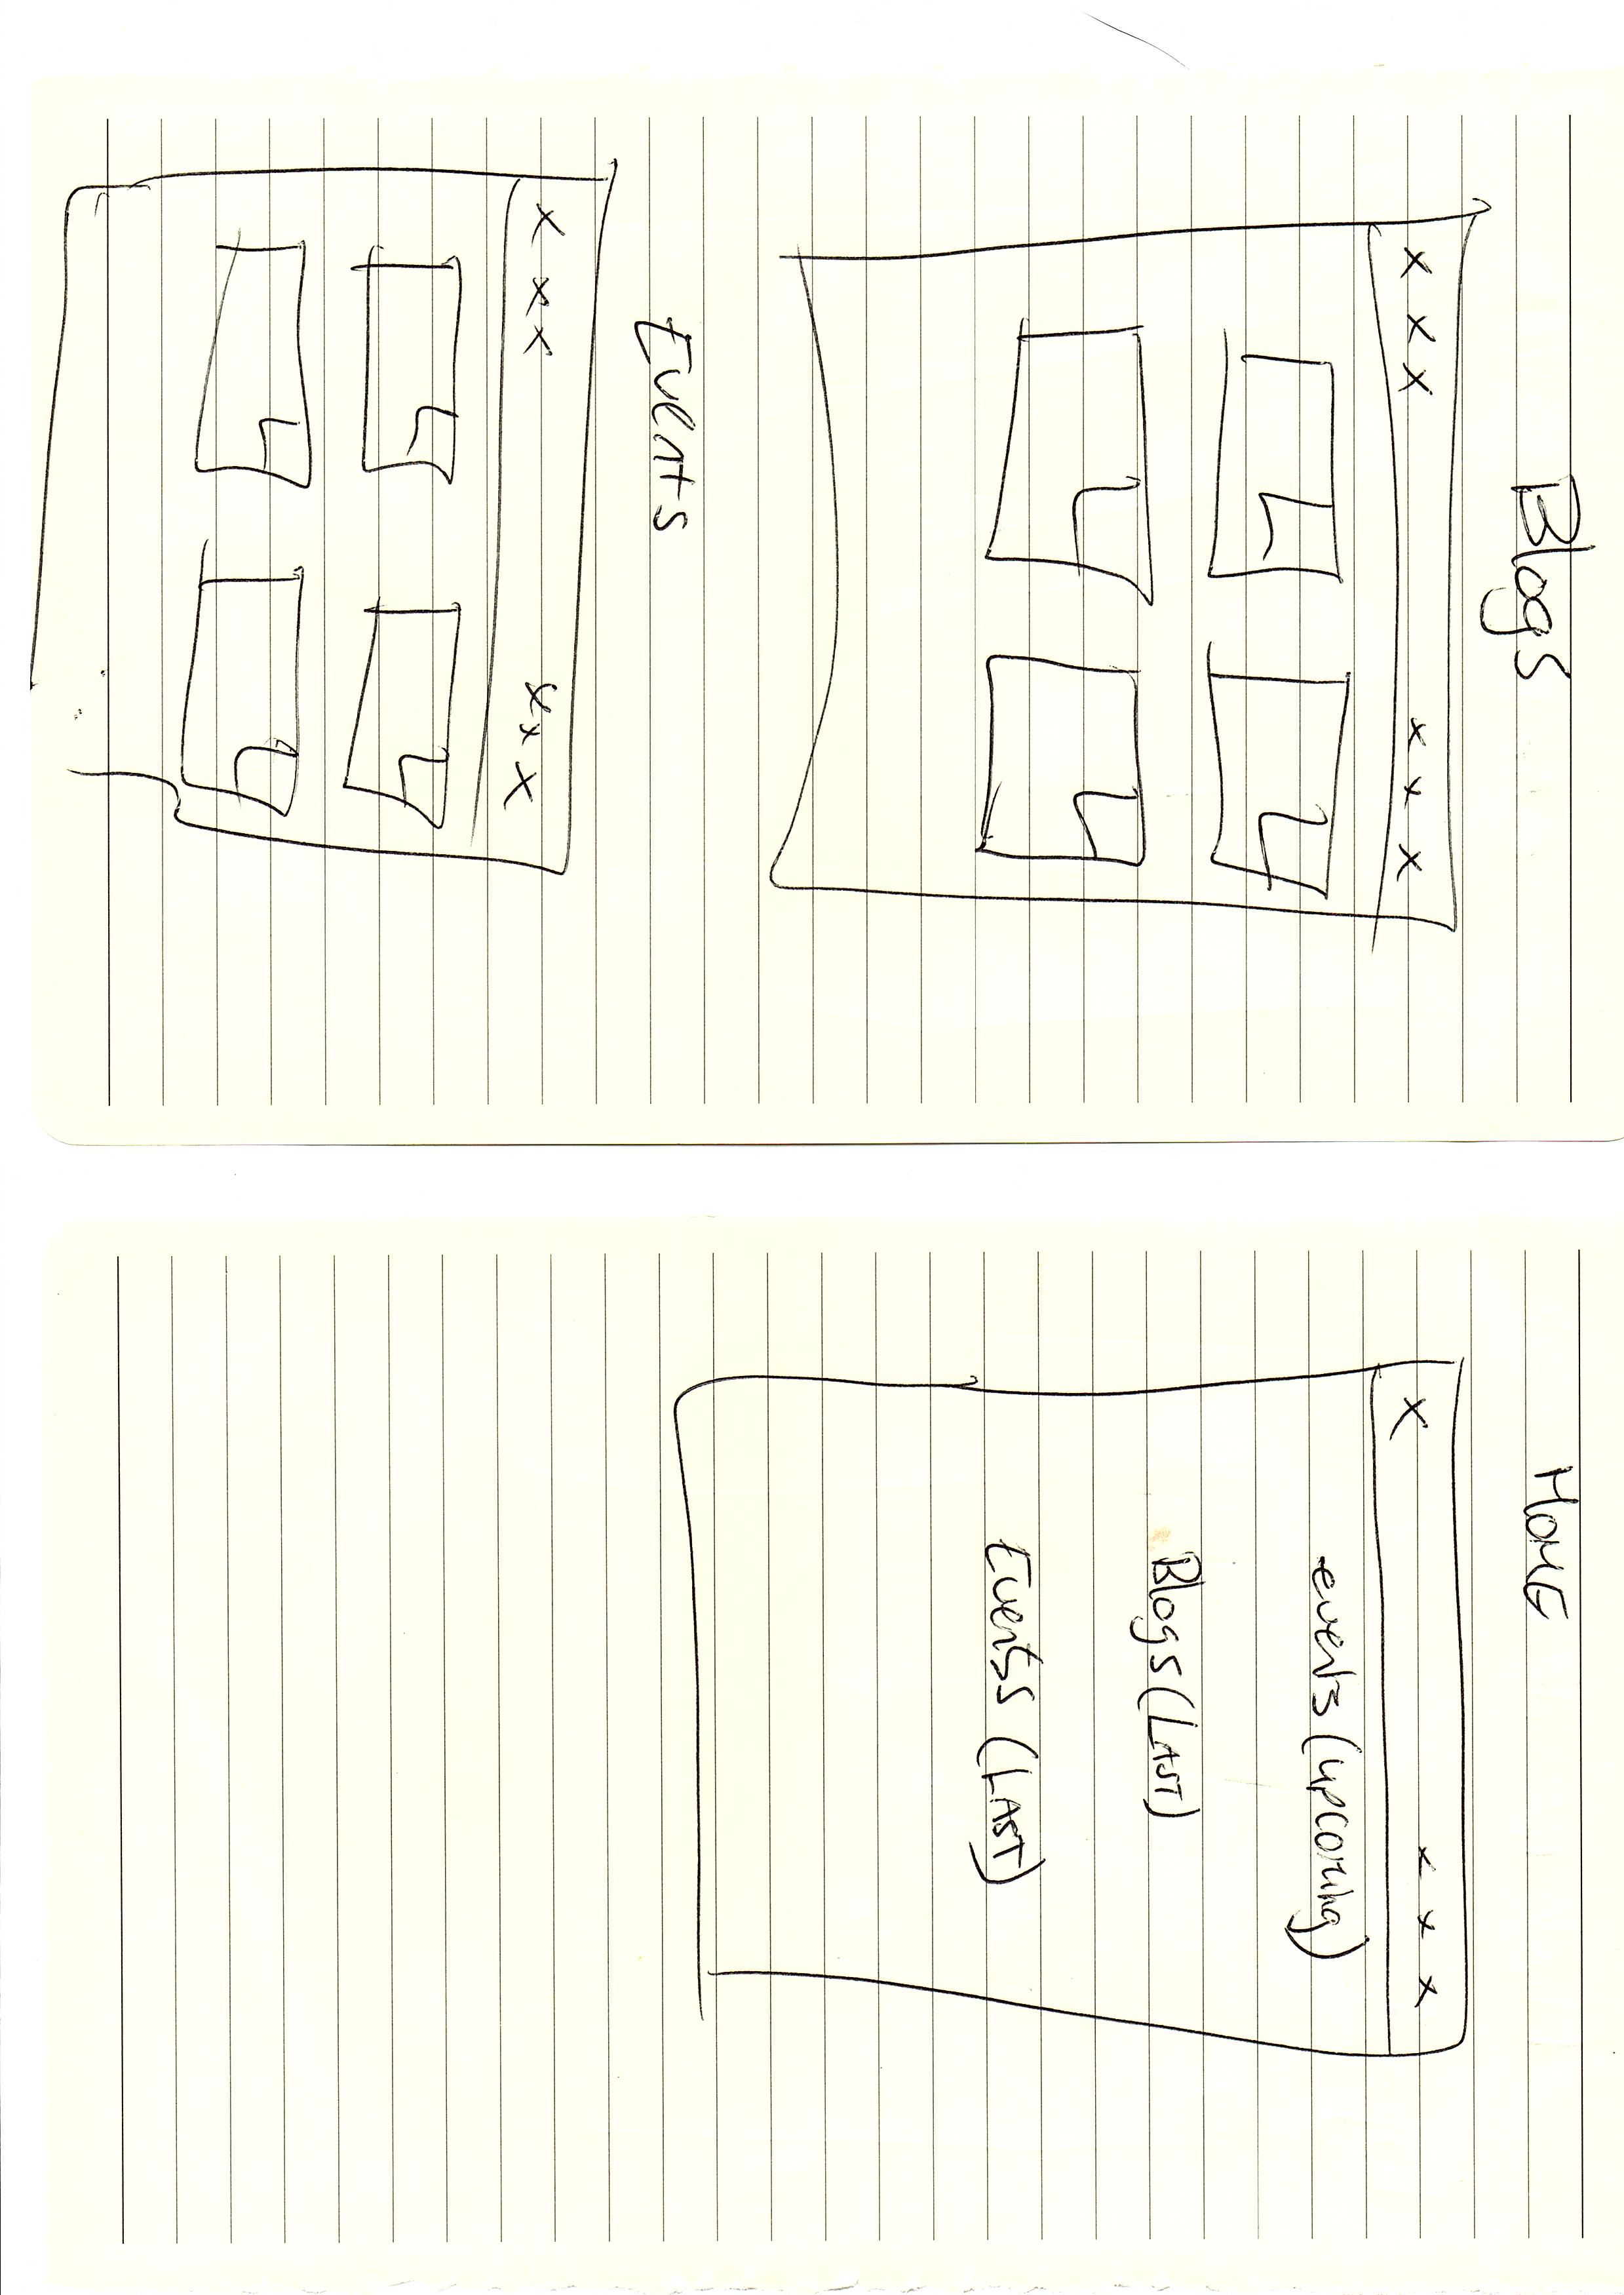 Blogs
x x x x x x
Events
x x x x x x
HOME
x x x x
events (upcoming)
Blogs (LAST)
Events (LAST)